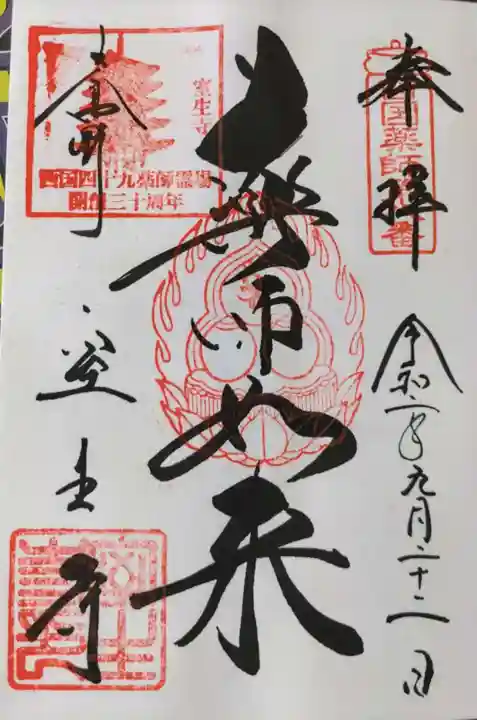 奉拝
令和二年九月二十二日
薬師如来
室生寺
室生寺
西国四十九薬師霊場
開創三十周年